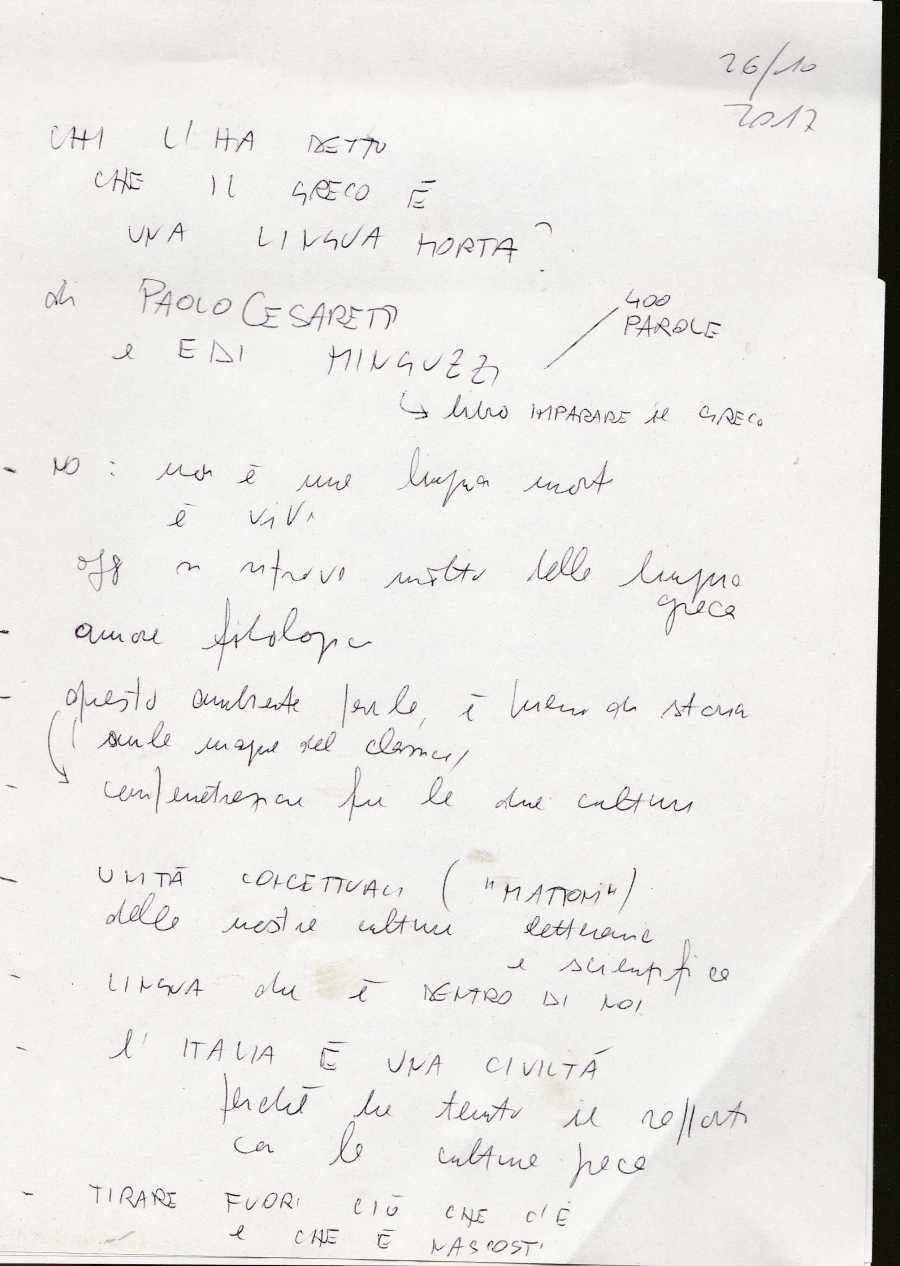 26/10
2017
CHI L'HA DETTO
CHE IL GRECO È
UNA LINGUA MORTA?
di PAOLO CESARETTI
e EDI MINGUZZI
400
PAROLE
libro IMPARARE il GRECO
- NO : non è una lingua mort
è viva
oggi si ritrova molto della lingua
greca
- amore filologia
- questo ambiente , è di storia
del classico
- compenetrazione fra le due culture
- UNITÀ CONCETTUALI ("MATTONI")
della nostra cultura letteraria
e scientifica
- LINGUA che è DENTRO DI NOI
- l'ITALIA È UNA CIVILTÀ
perché ha tenuto il rapporto
con la cultura greca
- TIRARE FUORI CIÒ CHE C'È
e CHE È NASCOSTO